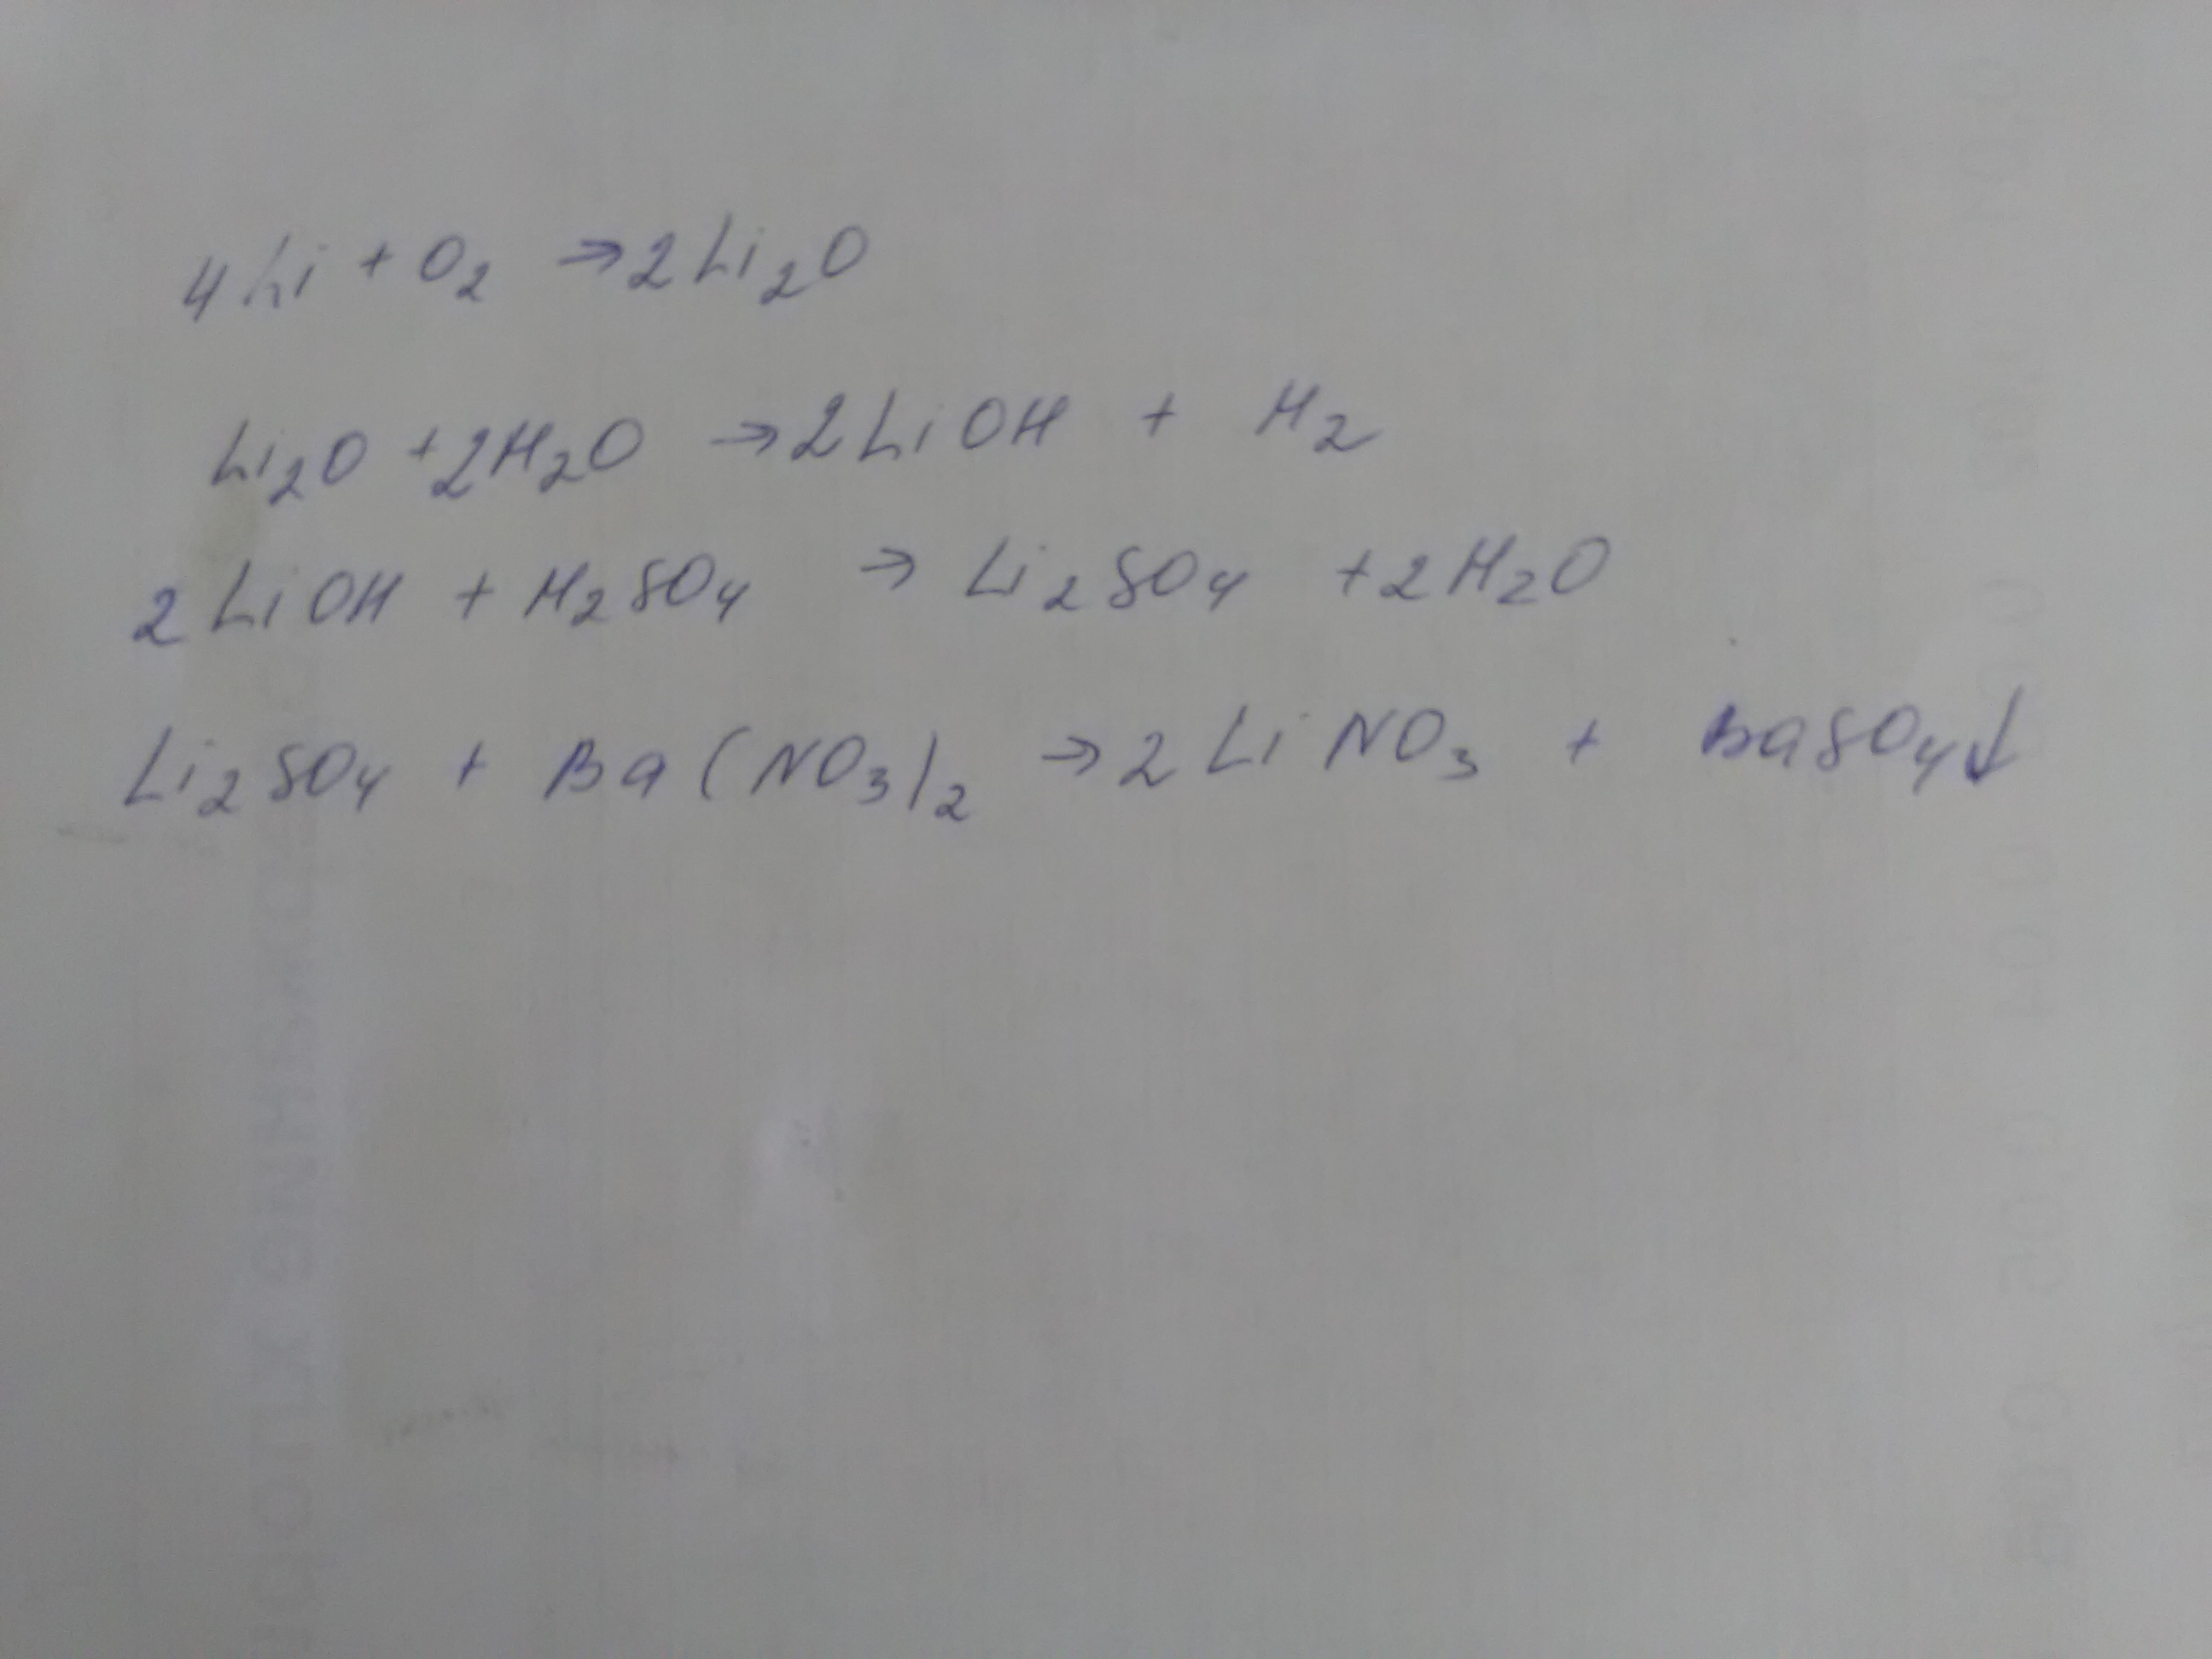 4Li + O₂ → 2Li₂O
Li₂O + 2H₂O → 2LiOH + H₂
2LiOH + H₂SO₄ → Li₂SO₄ + 2H₂O
Li₂SO₄ + Ba(NO₃)₂ → 2LiNO₃ + BaSO₄↓